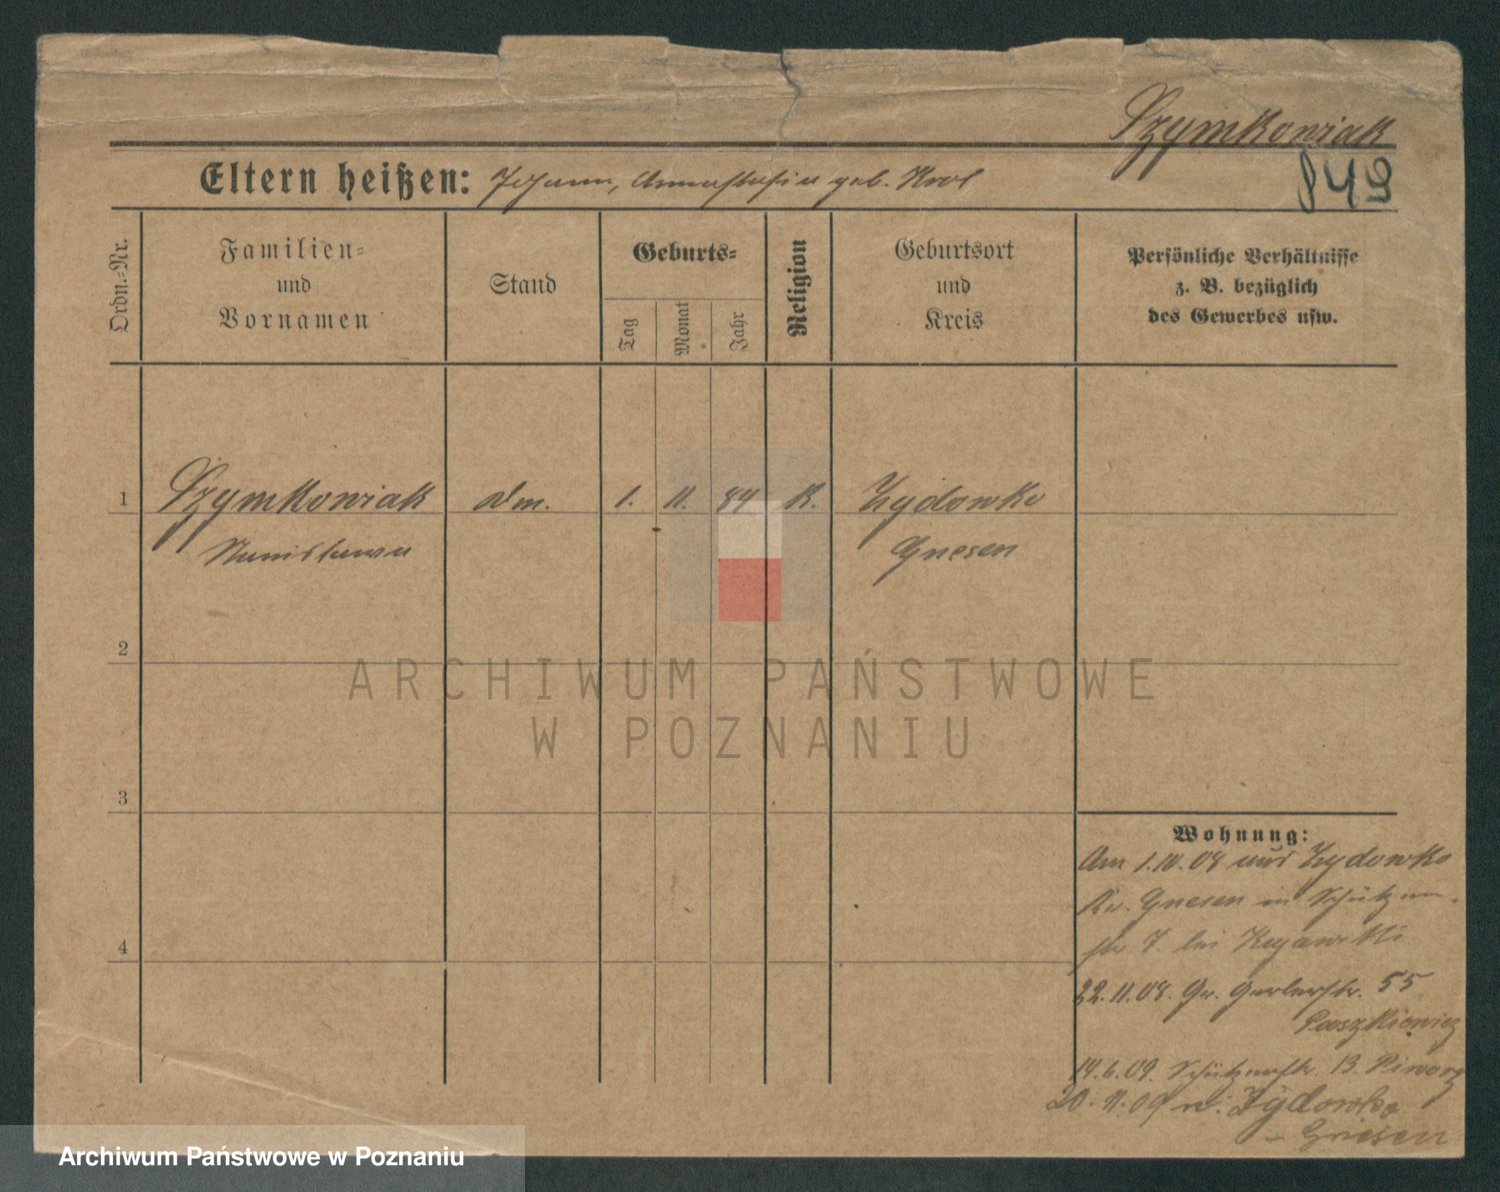 Szymkowiak
849
Eltern heißen: Johann, Annastasia geb. Krol
Ordn.-Nr.
Familien-
und
Vornamen
Stand
Geburts-
Tag
Monat
Jahr
Religion
Geburtsort
und
Kreis
Persönliche Verhältnisse
z. B. bezüglich
des Gewerbes usw.
1 Szymkowiak 1. 11. 84 K. Zydowko
Stanislawa Gnesen
2
3
4
Wohnung:
Am 1.10.08 aus Zydowko
Kr. Gnesen in Schützen-
str 7. bei Kujawski
22.11.08. Gr. Gerberstr. 55
14.6.09. Schützenstr. 13.
20.11.09 n. Zydowko
Gnesen
ARCHIWUM PAŃSTWOWE
W POZNANIU
Archiwum Państwowe w Poznaniu